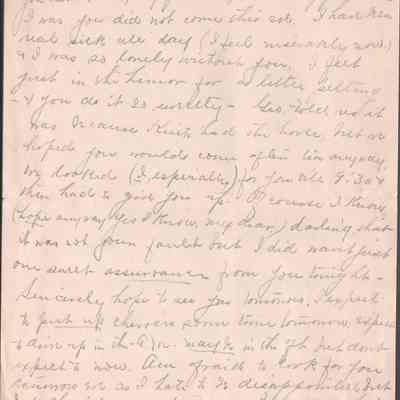 I was you did not come this eve. I have been
real sick all day (I feel miserable now)
& I was so lonely without you. I felt
just in the humor for a little petting
- & you do it so sweetly - Geo. told us it
was because Kirk had the horse, but we
hoped you would come after tea anyway.
We looked (I, especially) for you till 9:30 &
then had to give you up. Of course I know,
(hope anyway, yes I know, my dear,) darling that
it was not your fault but I did want just
one sweet assurance from you tonight -
Sincerely hope to see you tomorrow. I expect
to put up cherries some time tomorrow, expect
to drive up in the may be in the but don't
expect to now. Am afraid to look for you
tomorrow eve as I hate to be disappointed but